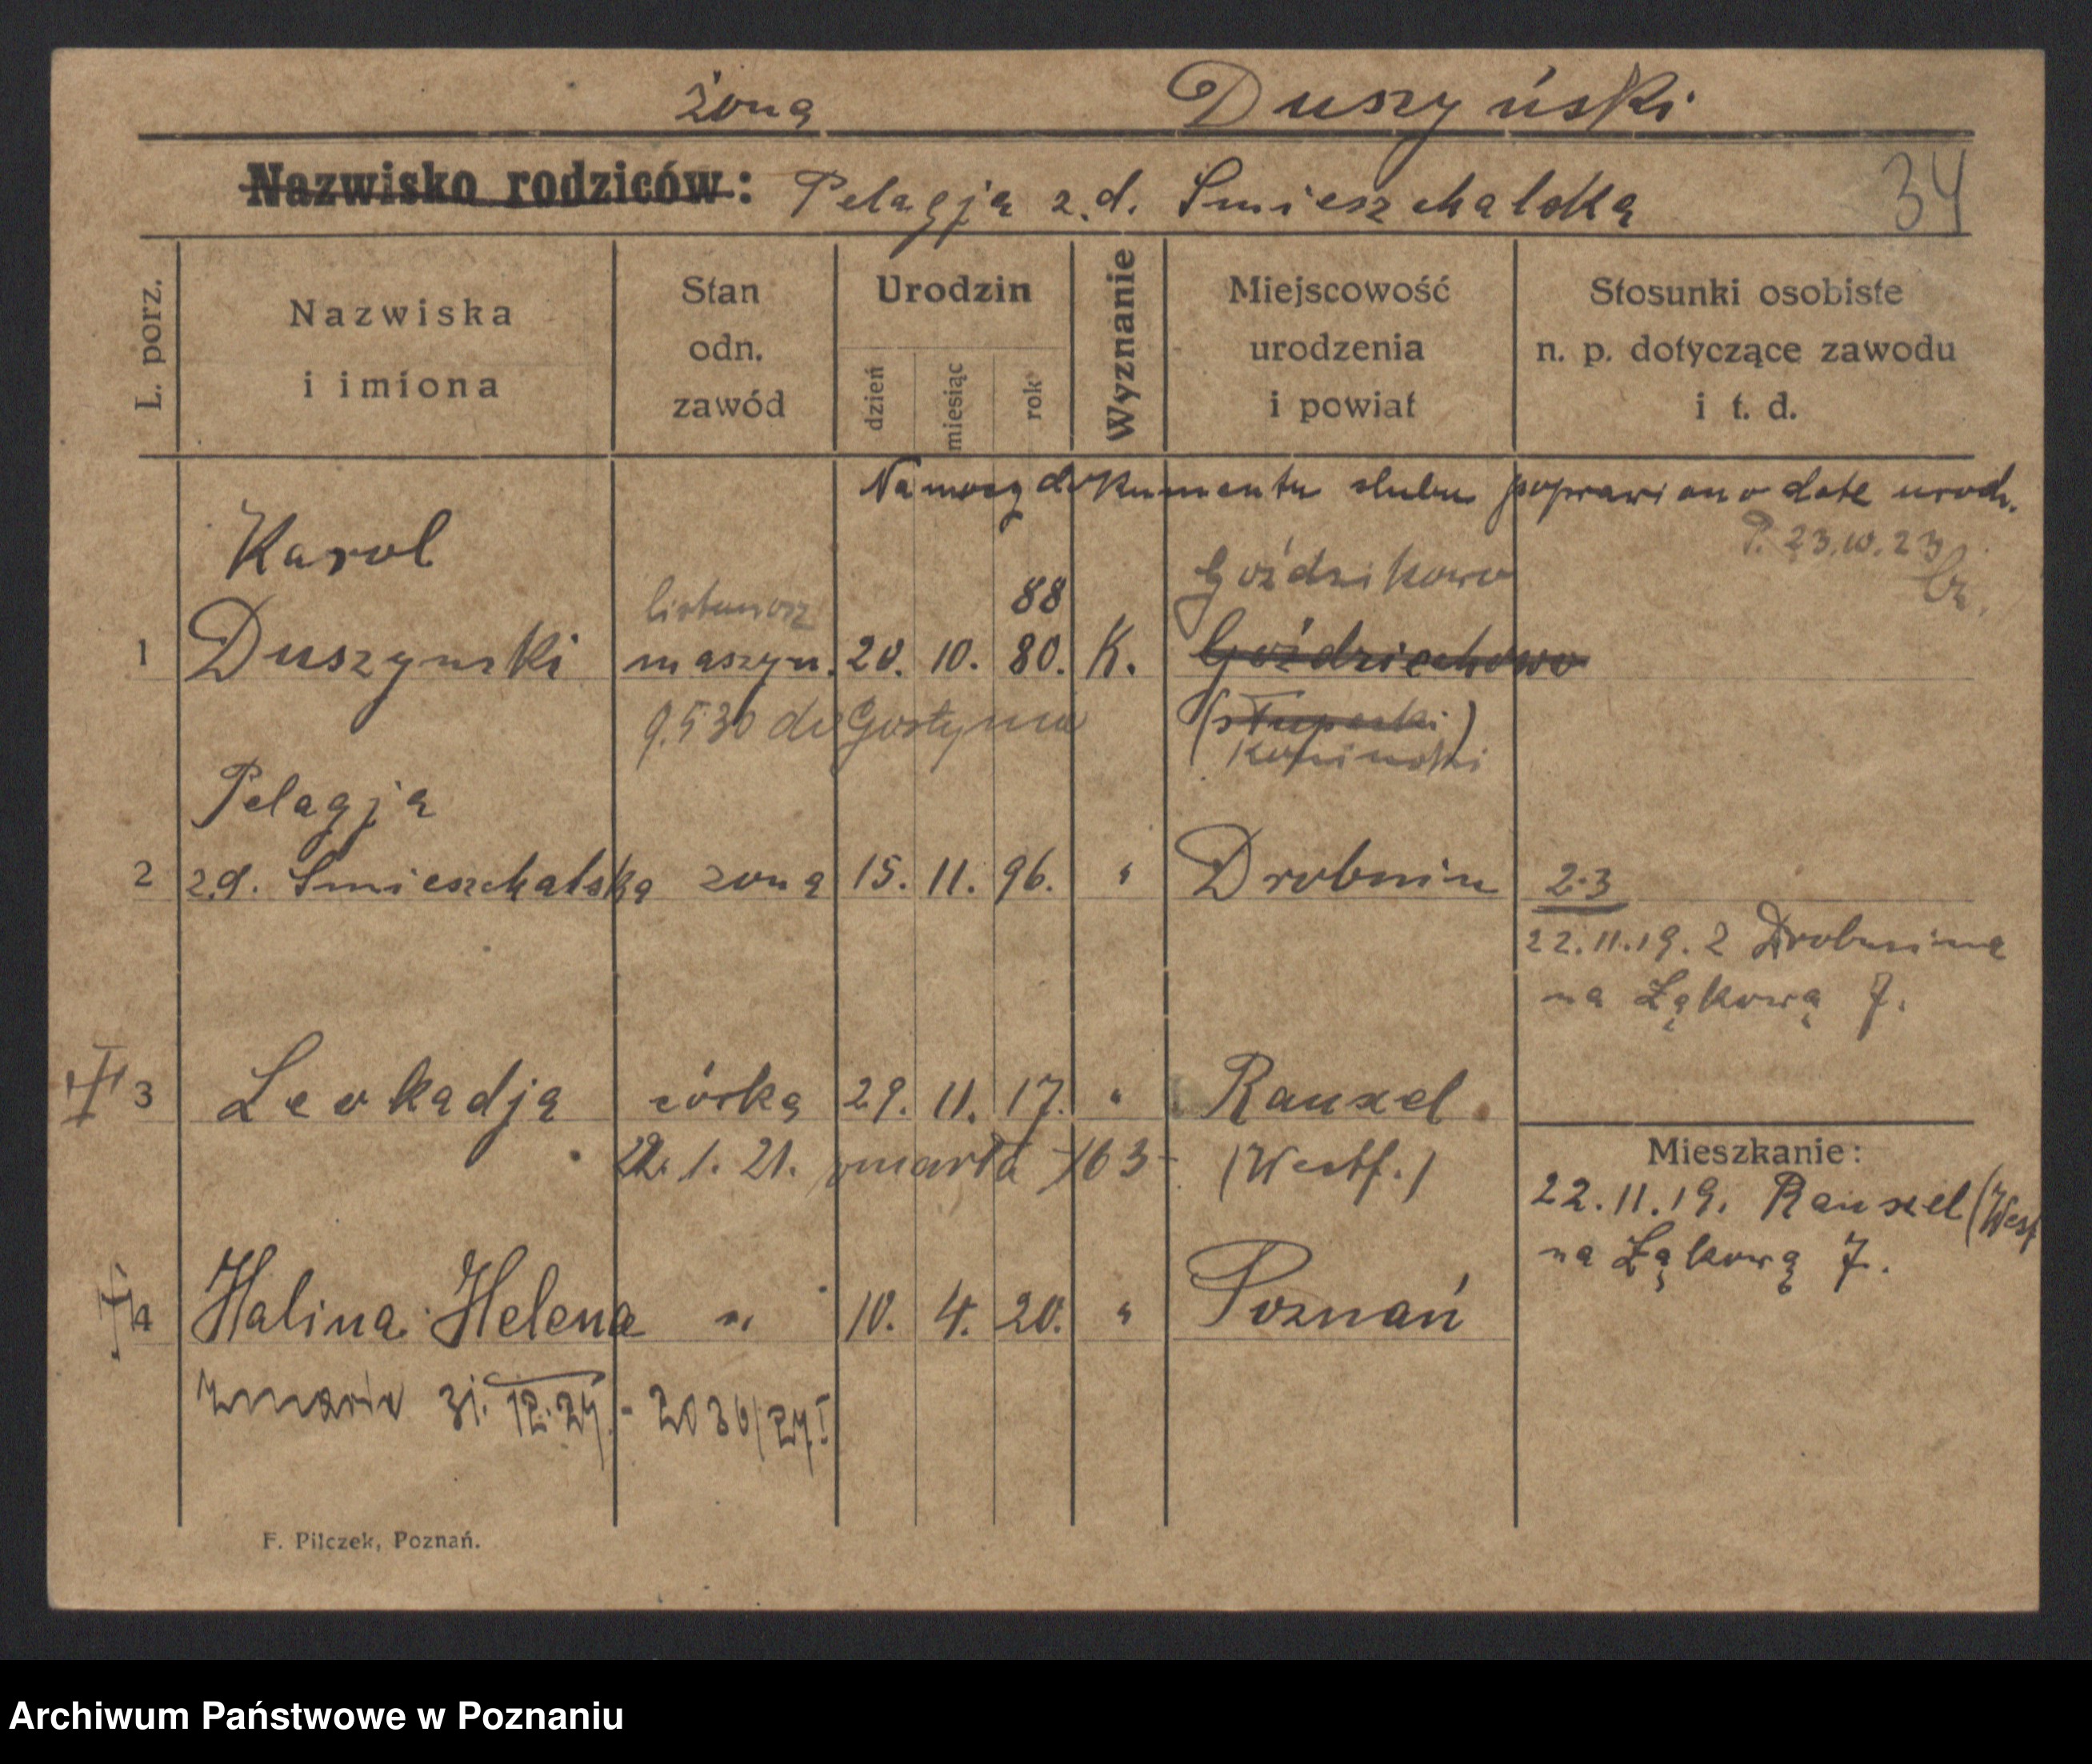 żona Duszyński
Nazwisko rodziców: Pelagja z.d. Smieszchalska
34
L. porz.
Nazwiska i imiona
Stan odn. zawód
Urodzin
dzień
miesiąc
rok
Wyznanie
Miejscowość urodzenia i powiat
Stosunki osobiste n. p. dotyczące zawodu i t. d.
Na mocy dokumentu slubu poprawiono date urodz.
P. 23.10.23
Karol
listonosz
88
Goździkowo
1 Duszynski maszyn. 20. 10. 80. K. Goździechowo
9.5 30 do Gostynia
(słupecki)
koninski
Pelagja
2 z.d. Smieszchalska zona 15. 11. 96. " Drobnin 23
22.11.19. z Drobnina
na Łąkową 7.
3 Leokadja córka 29. 11. 17. " Rauxel
22. 1. 21. zmarła 163 (Westf.)
Mieszkanie:
22.11.19. Rauxel (Westf
na Łąkową 7.
4 Halina Helena " 10. 4. 20. " Poznań
zmarła 31.12.24. - 2036/24 I
F. Pilczek, Poznań.
Archiwum Państwowe w Poznaniu